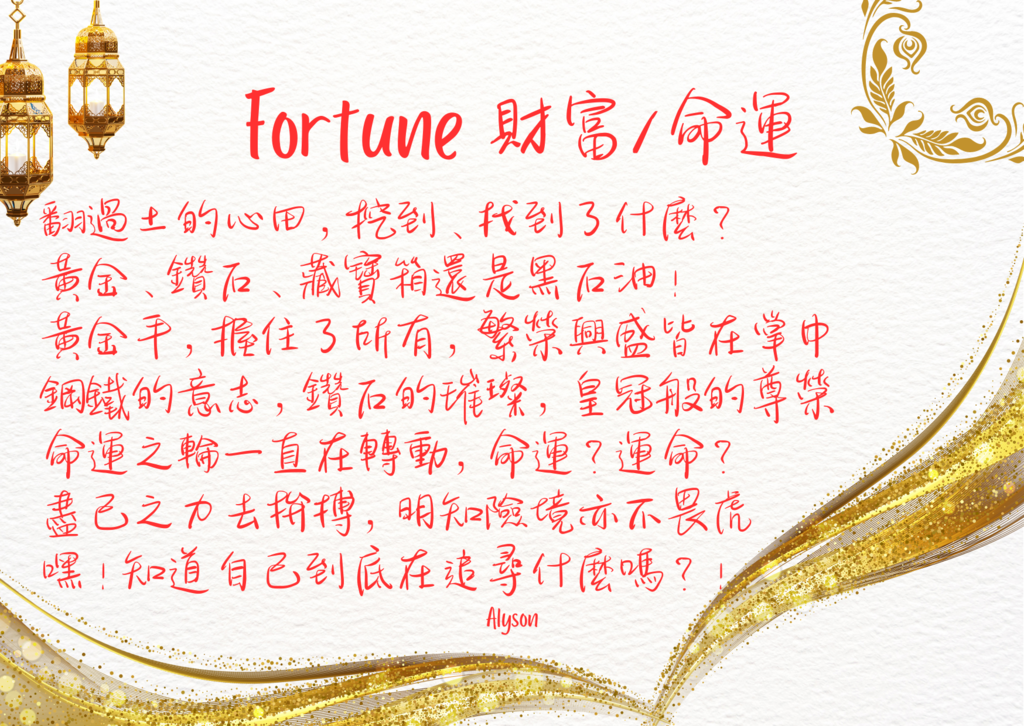 Fortune 財富/命運
翻過土的心田，挖到、找到了什麼？
黃金、鑽石、藏寶箱還是黑石油！
黃金手，握住了所有，繁榮興盛皆在掌中
鋼鐵的意志，鑽石的璀璨，皇冠般的尊榮
命運之輪一直在轉動，命運？運命？
盡己之力去拚搏，明知險境亦不畏虎
嘿！知道自己到底在追尋什麼嗎？！
Alyson